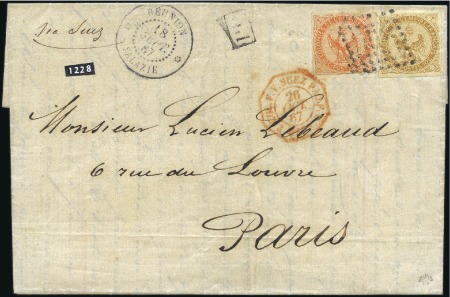 via Suez
RÉUNION
18
SEPT.
67
SALAZIE
PD
1228
SUEZ
26
67
Monsieur Lucien Lebeaud
6 rue du Louvre
Paris